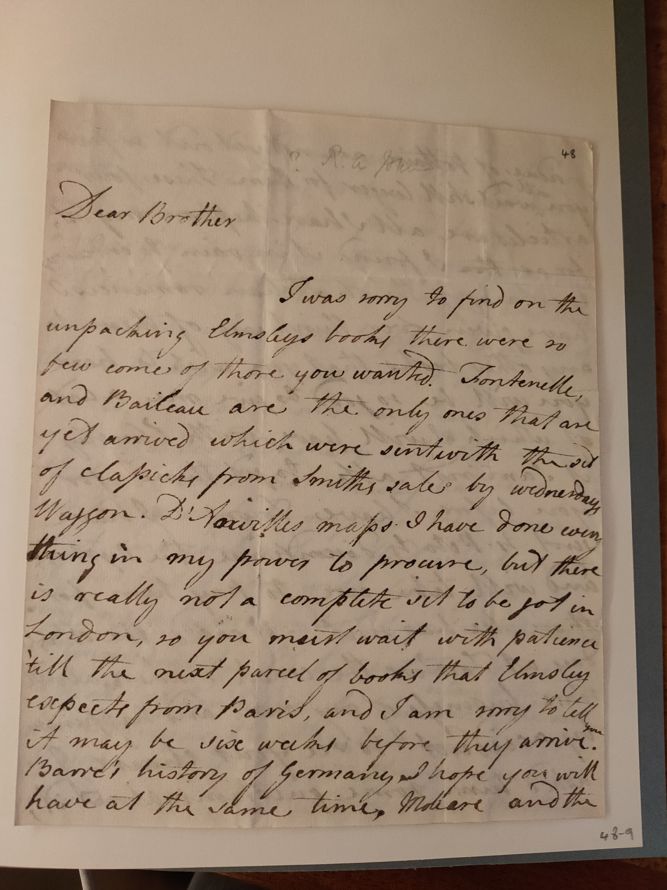 48
? R. A.
Dear Brother
I was sorry to find on the
unpacking Elmsleys books there were so
few come of those you wanted. Fontenelle,
and Baileau are the only ones that are
yet arrived which were sent with the set
of classicks from Smiths sale by wednesdays
Waggon. D'Anvilles maps I have done every
thing in my power to procure, but there
is really not a complete set to be got in
London, so you must wait with patience
'till the next parcel of books that Elmsley
expects from Paris, and I am sorry to tell you
it may be six weeks before they arrive.
Barre's history of Germany I hope you will
have at the same time, Moliare and the
48-9